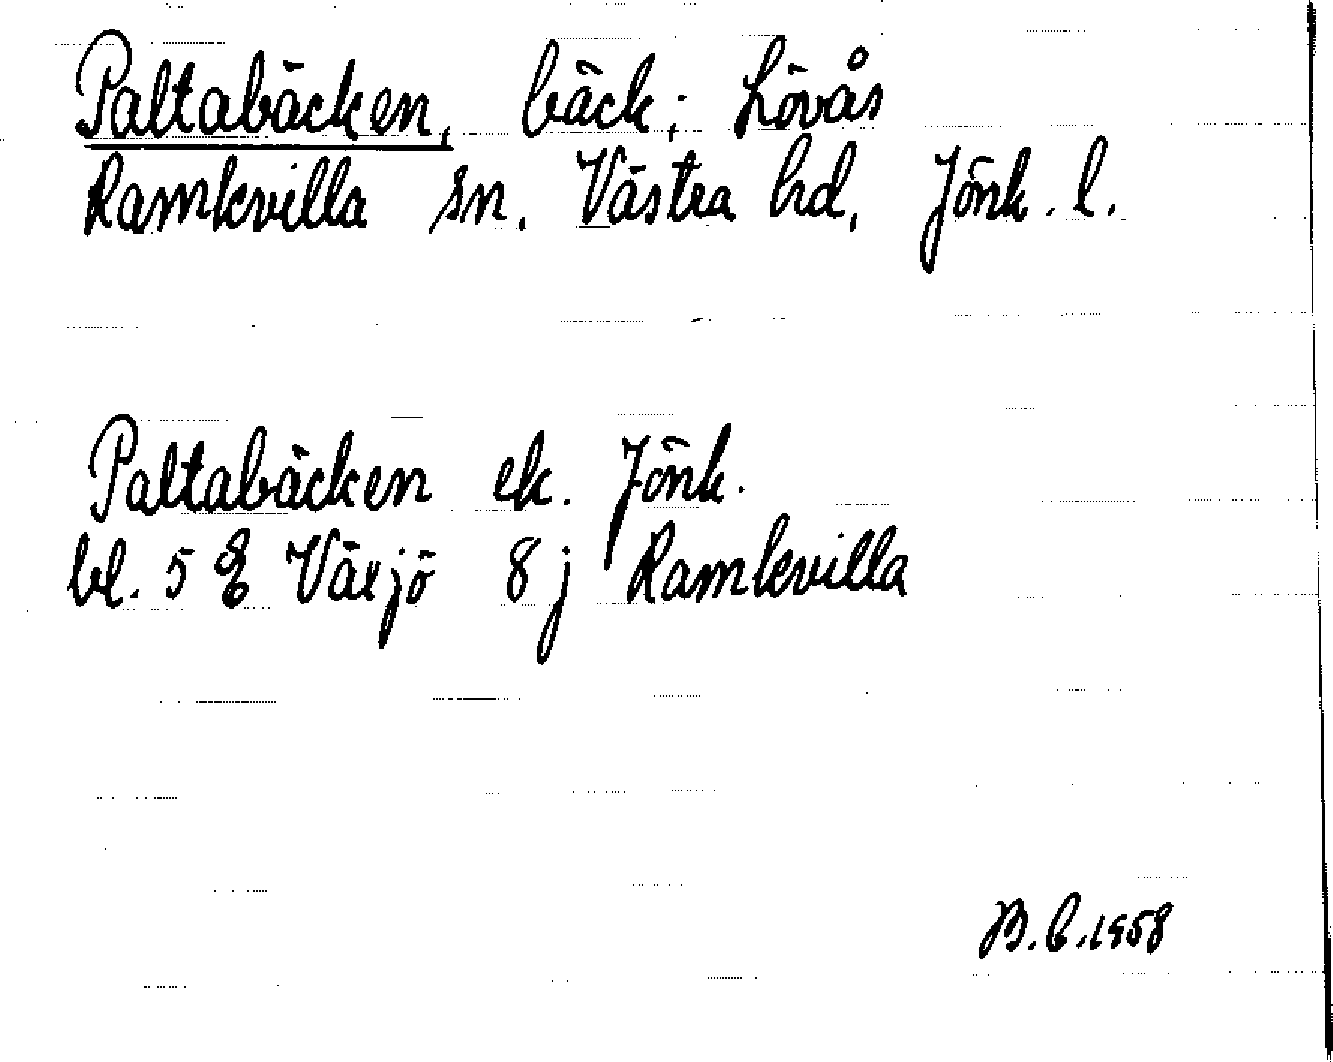 Paltabäcken, bäck; Lövås
Ramkvilla sn. Västra hd, Jönk. l.
Paltabäcken ek. Jönk.
bl. 5 E Växjö 8j Ramkvilla
B.C.1958